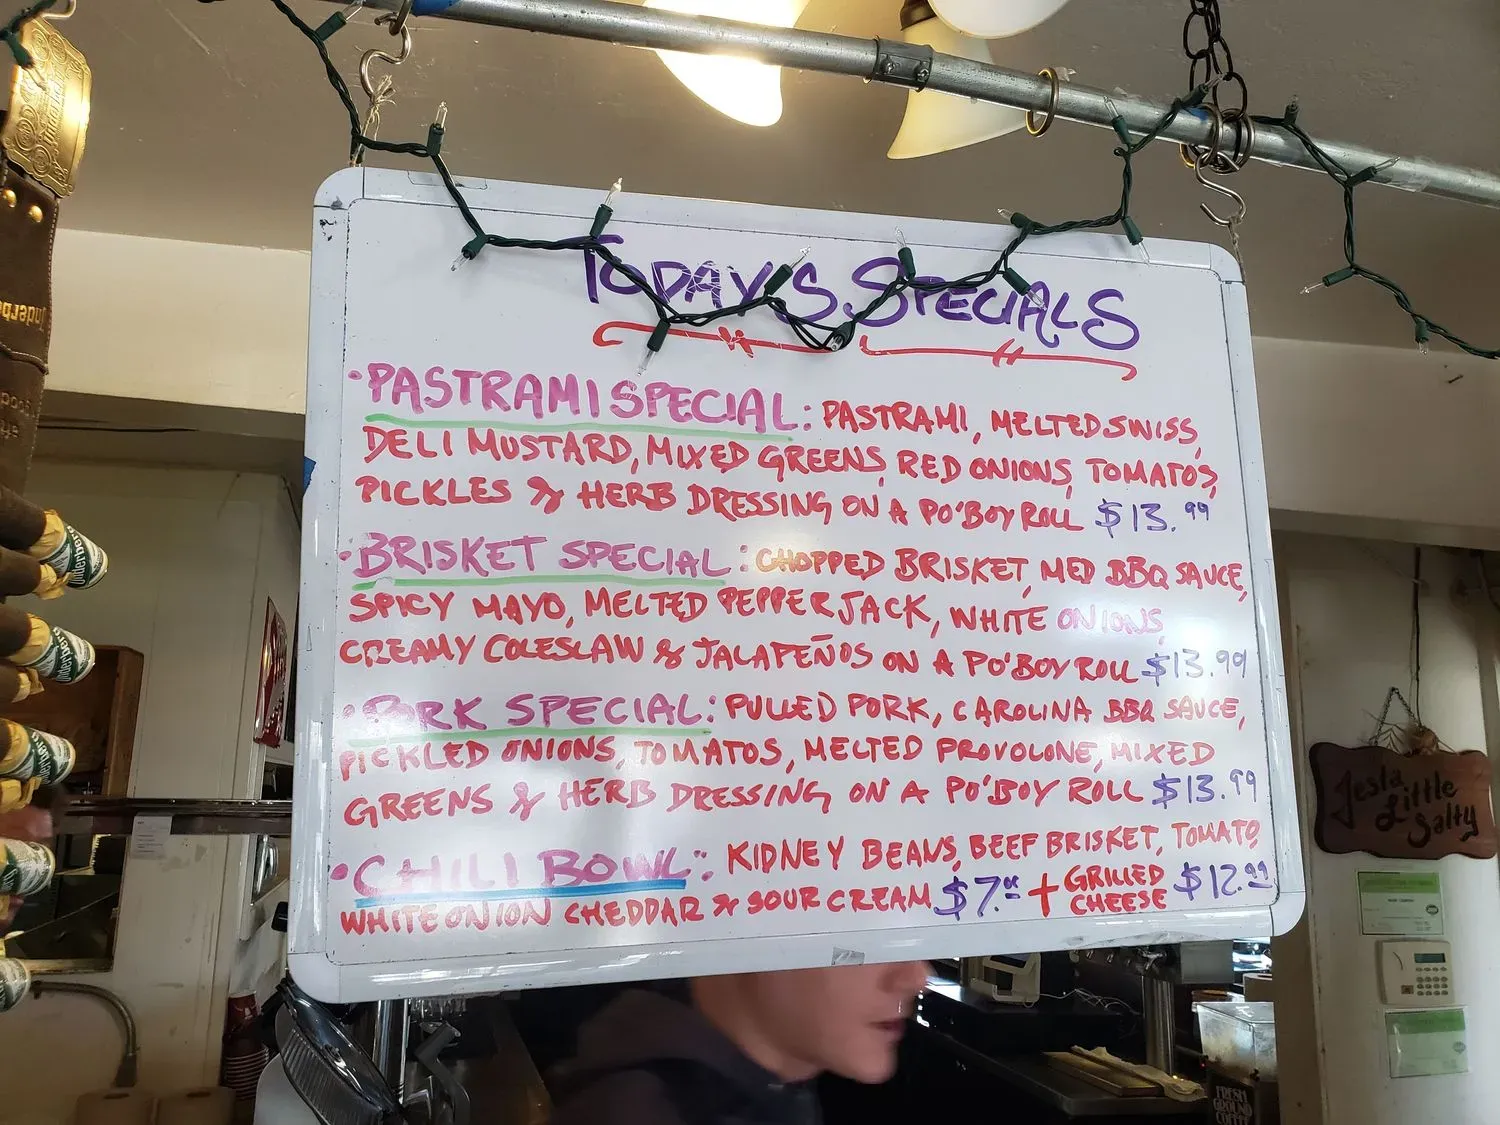 TODAY'S SPECIALS
• PASTRAMI SPECIAL: PASTRAMI, MELTED SWISS,
DELI MUSTARD, MIXED GREENS, RED ONIONS, TOMATOS,
PICKLES & HERB DRESSING ON A PO'BOY ROLL $13.99
• BRISKET SPECIAL: CHOPPED BRISKET, MED BBQ SAUCE,
SPICY MAYO, MELTED PEPPER JACK, WHITE ONIONS,
CREAMY COLESLAW & JALAPEÑOS ON A PO'BOY ROLL $13.99
• PORK SPECIAL: PULLED PORK, CAROLINA BBQ SAUCE,
PICKLED ONIONS, TOMATOS, MELTED PROVOLONE, MIXED
GREENS & HERB DRESSING ON A PO'BOY ROLL $13.99
• CHILI BOWL: KIDNEY BEANS, BEEF BRISKET, TOMATO,
WHITE ONION CHEDDAR & SOUR CREAM $7. + GRILLED CHEESE $12.99
Jesla
Little
Salty
FRESH
GROUND
COFFEE